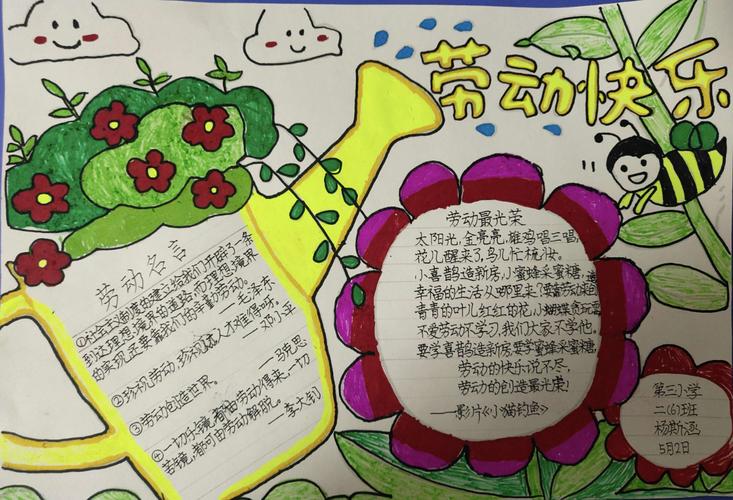 劳动快乐
劳动名言
①社会主义制度的建立给我们开辟了一条
到达理想境界的道路,而理想境界
的实现还要靠我们的辛勤劳动。
——毛泽东
②珍视劳动,珍视人才,人才难得呀。
——邓小平
③劳动创造世界。
——马克思
④一切乐境,都由劳动得来,一切
苦境,都可由劳动解脱。
——李大钊
劳动最光荣
太阳光,金亮亮,雄鸡唱三唱,
花儿醒来了,鸟儿忙梳妆。
小喜鹊造新房,小蜜蜂采蜜糖,
幸福的生活从哪里来?要靠劳动来创造
青青的叶儿红红的花,小蝴蝶贪玩耍
不爱劳动不学习,我们大家不学他。
要学喜鹊造新房,要学蜜蜂采蜜糖,
劳动的快乐说不尽,
劳动的创造最光荣!
——影片《小猫钓鱼》
第三小学
二(6)班
杨斯涵
5月2日